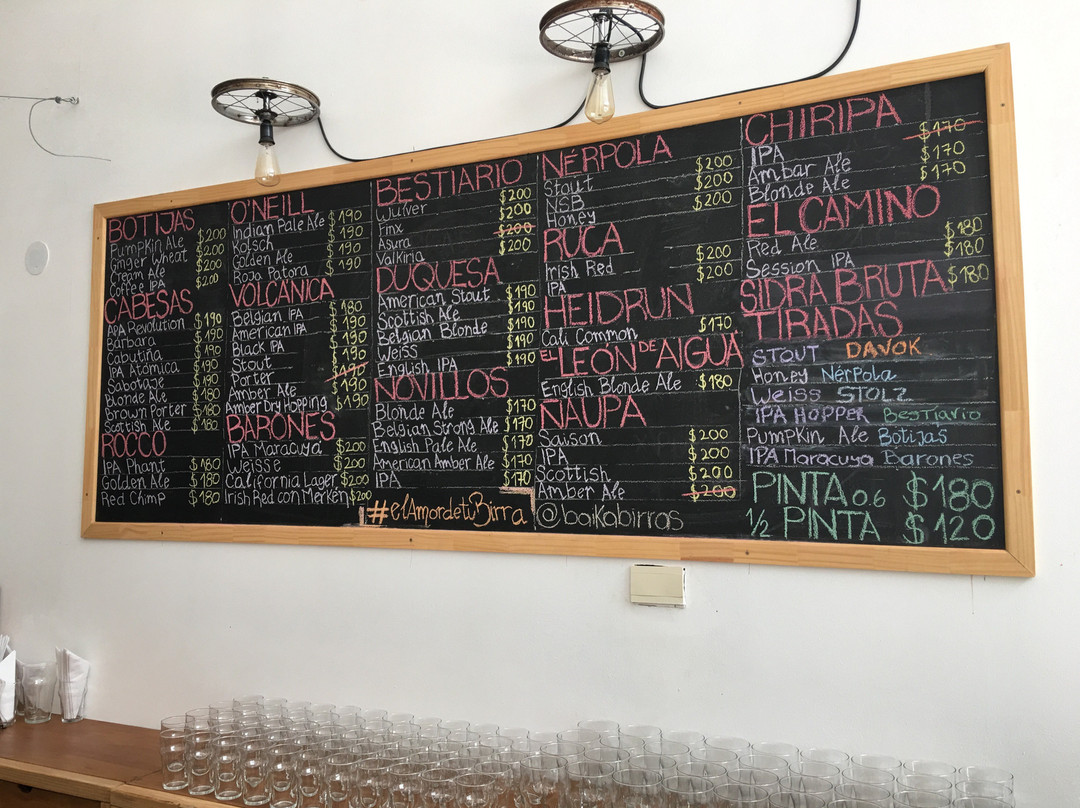 BOTIJAS
Pumpkin Ale $200
Ginger Wheat $200
Cream Ale $200
Coffee IPA $200
CABESAS
APA Revolution $190
Barbara $190
Cabutiña $190
IPA Atómica $190
Sabotage $190
Blonde Ale $190
Brown Porter $180
Scottish Ale $180
ROCCO
IPA Phant $180
Golden Ale $180
Red Chimp $180
O'NEILL
Indian Pale Ale $190
Kolsch $190
Golden Ale $190
Roja Patora $190
VOLCÁNICA
Belgian IPA $180
American IPA $190
Black IPA $190
Stout $190
Porter $190
Amber Ale $190
Amber Dry Hopping $190
BARONES
IPA Maracuyá $200
Weisse $200
California Lager $200
Irish Red con Merkén $200
BESTIARIO
Wulver $200
Finx $200
Asura $200
Valkiria $200
DUQUESA
American Stout $190
Scottish Ale $190
Belgian Blonde $190
Weiss $190
English IPA $190
NOVILLOS
Blonde Ale $170
Belgian Strong Ale $170
English Pale Ale $170
American Amber Ale $170
IPA $170
#elAmordetuBirra
NÉRPOLA
Stout $200
NSB $200
Honey $200
RUCA
Irish Red $200
IPA $200
HEIDRUN
Cali Common $170
EL LEÓN DE AIGUÁ
English Blonde Ale $180
ÑAUPA
Saison $200
IPA $200
Scottish $200
Amber Ale $200
@baikabirras
CHIRIPA
IPA $170
Ambar Ale $170
Blonde Ale $170
EL CAMINO
Red Ale $180
Session IPA $180
SIDRA BRUTA $180
TIRADAS
STOUT DAVOK
Honey Nérpola
Weiss STOLZ
IPA HOPPER Bestiario
Pumpkin Ale Botijas
IPA Maracuya Barones
PINTA 0.6 $180
1/2 PINTA $120